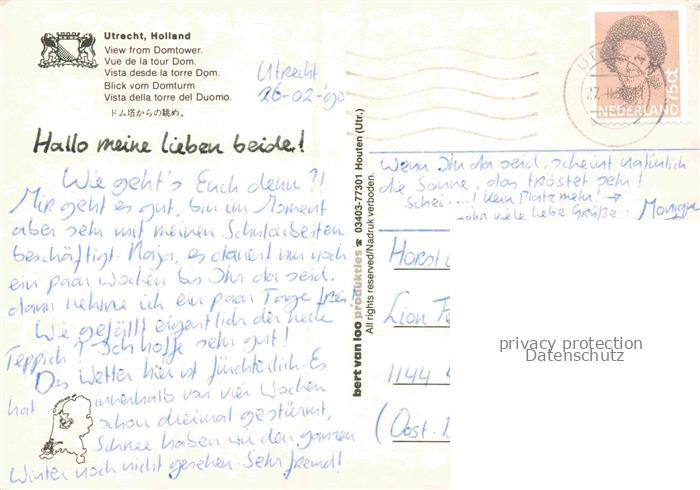 Utrecht, Holland
View from Domtower.
Vue de la tour Dom.
Vista desde la torre Dom.
Blick vom Domturm
Vista della torre del Duomo.
ドム塔からの眺め。
Utrecht
26-02-'90
Hallo meine lieben beide!
Wie geht's Euch denn?!
Mir geht es gut, bin im Moment
aber sehr mit meinen Schularbeiten
beschäftigt. Naja, es dauert nur noch
ein paar Wochen bis Ihr da seid,
dann nehme ich ein paar Tage frei!
Wie gefällt eigentlich der neue
Teppich? Ich hoffe sehr gut!
Das Wetter hier ist fürchterlich. Es
hat innerhalb von vier Wochen
schon dreimal gestürmt,
Schnee haben wir den ganzen
Winter noch nicht gesehen. Sehr fremd!
bert van loo produkties ☎ 03403-77301 Houten (Utr.)
All rights reserved/Nadruk verboden.
75ct
NEDERLAND
Wenn Ihr da seid, scheint natürlich
die Sonne, das tröstet sehr!
Schei....! Kein Platz mehr! →
sehr viele liebe Grüße:
Horst
Lion
1144
(Oost.
privacy protection
Datenschutz